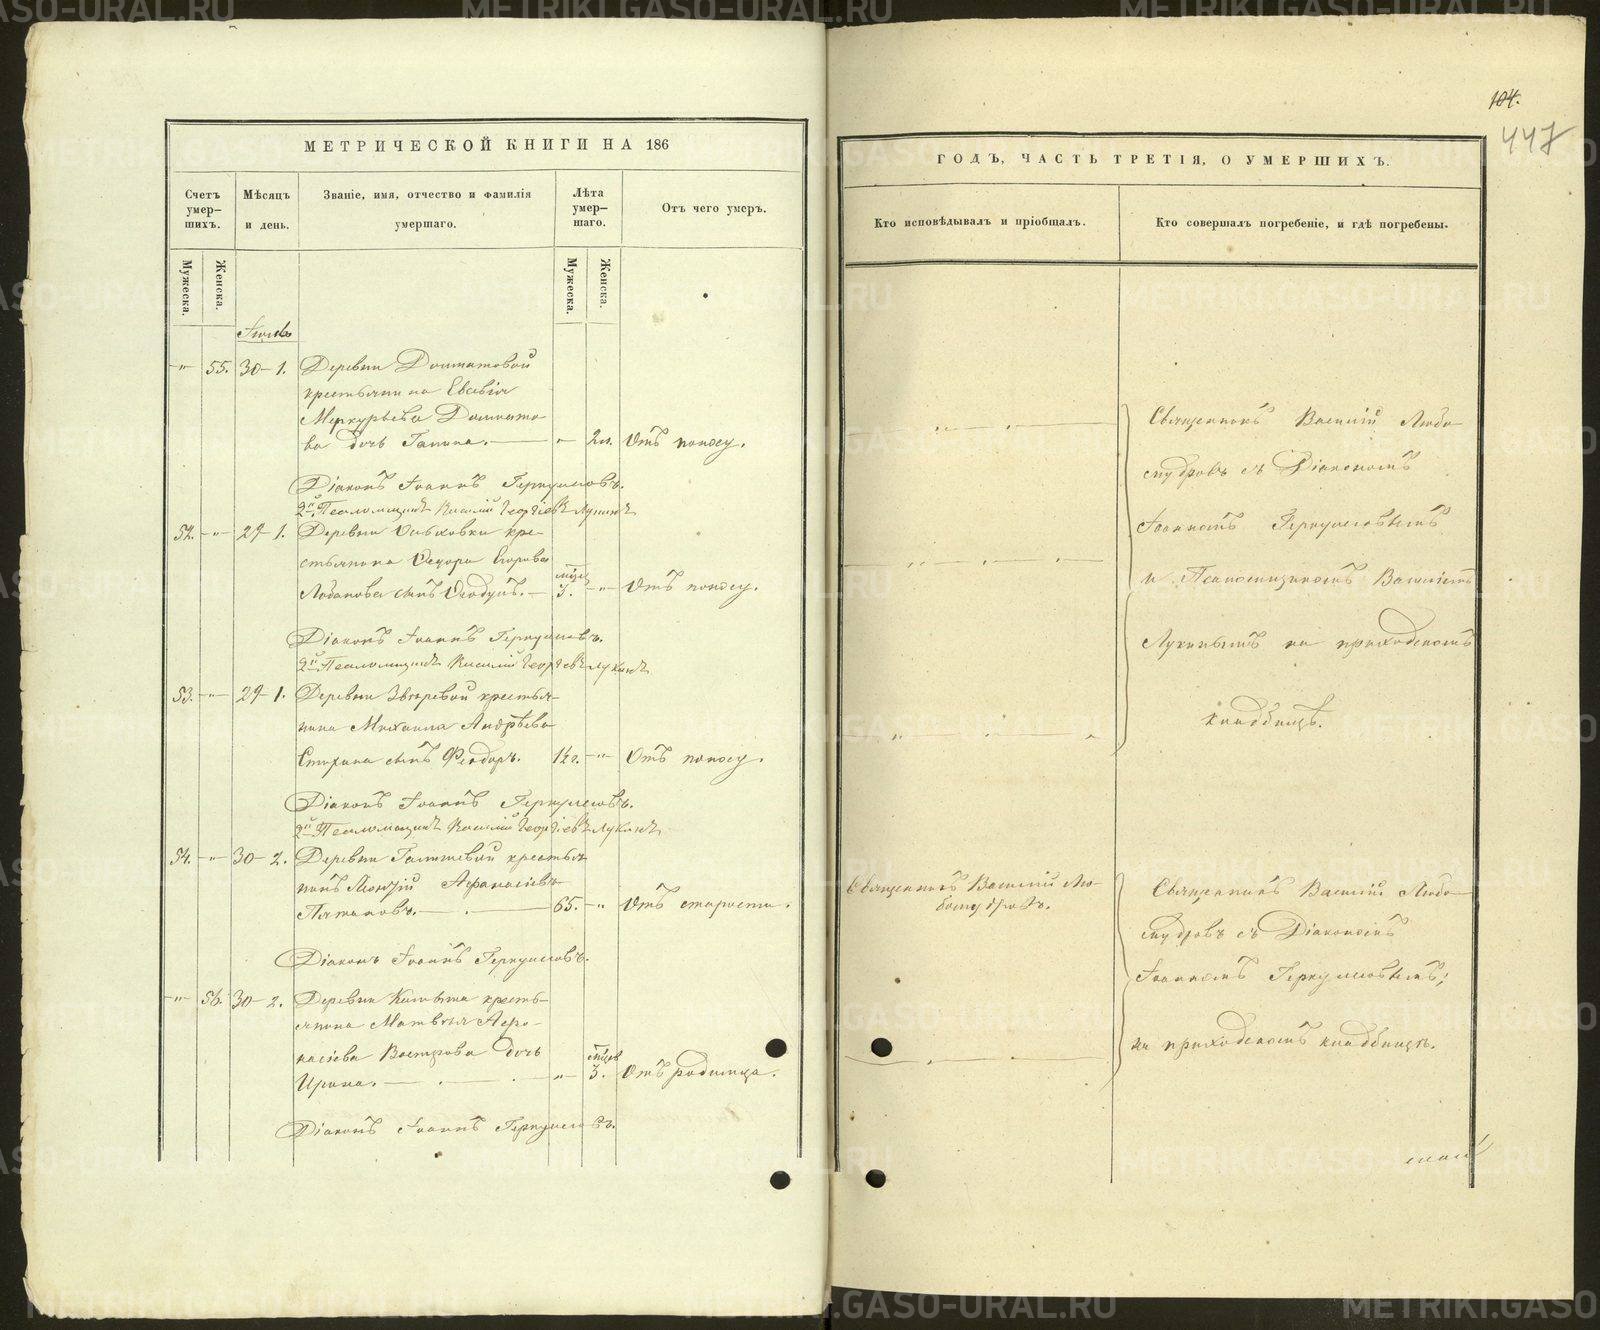 104.
447
МЕТРИЧЕСКОЙ КНИГИ НА 186
Счетъ умер-шихъ.
Мѣсяцъ и день.
Званіе, имя, отчество и фамилія умершаго.
Лѣта умер-шаго.
Отъ чего умеръ.
Мужеска.
Женска.
Мужеска.
Женска.
Іюль
55. 30-1. Деревни Долматовой
крестьянина
Меркурьева Долмато-
ва дочь Галина. 2 н. Отъ поносу.
Діаконъ Іоаннъ Геркулесовъ.
2й Псаломщикъ Василій Георгіевъ Лукинъ
52. 29 1. Деревни кре-
стьянина Ѳедора Егорова
Лобанова сынъ 3. Отъ поносу.
Діаконъ Іоаннъ Геркулесовъ.
2й Псаломщикъ Василій Георгіевъ Лукинъ
53. 29 1. Деревни Звѣревой крестья-
нина Михаила Андрѣева
сынъ Феодоръ. 1½ г. Отъ поносу.
Діаконъ Іоаннъ Геркулесовъ.
2й Псаломщикъ Василій Георгіевъ Лукинъ
54. 30-2. Деревни крестья-
нинъ Афанасіевъ
65. Отъ старости.
Діаконъ Іоаннъ Геркулесовъ.
56. 30-2. Деревни кресть-
янина Матвѣя Афа-
насіева Вострова дочь
Ирина. мѣсяц. 3. Отъ родимца.
Діаконъ Іоаннъ Геркулесовъ.
ГОДЪ, ЧАСТЬ ТРЕТІЯ, О УМЕРШИХЪ.
Кто исповѣдывалъ и пріобщалъ.
Кто совершалъ погребеніе, и гдѣ погребены.
Священникъ Василій Любо-
мудровъ съ Діакономъ
Іоанномъ Геркулесовымъ
и Псаломщикомъ Василіемъ
Лукинымъ на приходскомъ
кладбищѣ.
Священникъ Василій Лю-
бомудровъ.
Священникъ Василій Любо-
мудровъ съ Діакономъ
Іоанномъ Геркулесовымъ;
на приходскомъ кладбищѣ.
METRIKI.GASO-URAL.RU